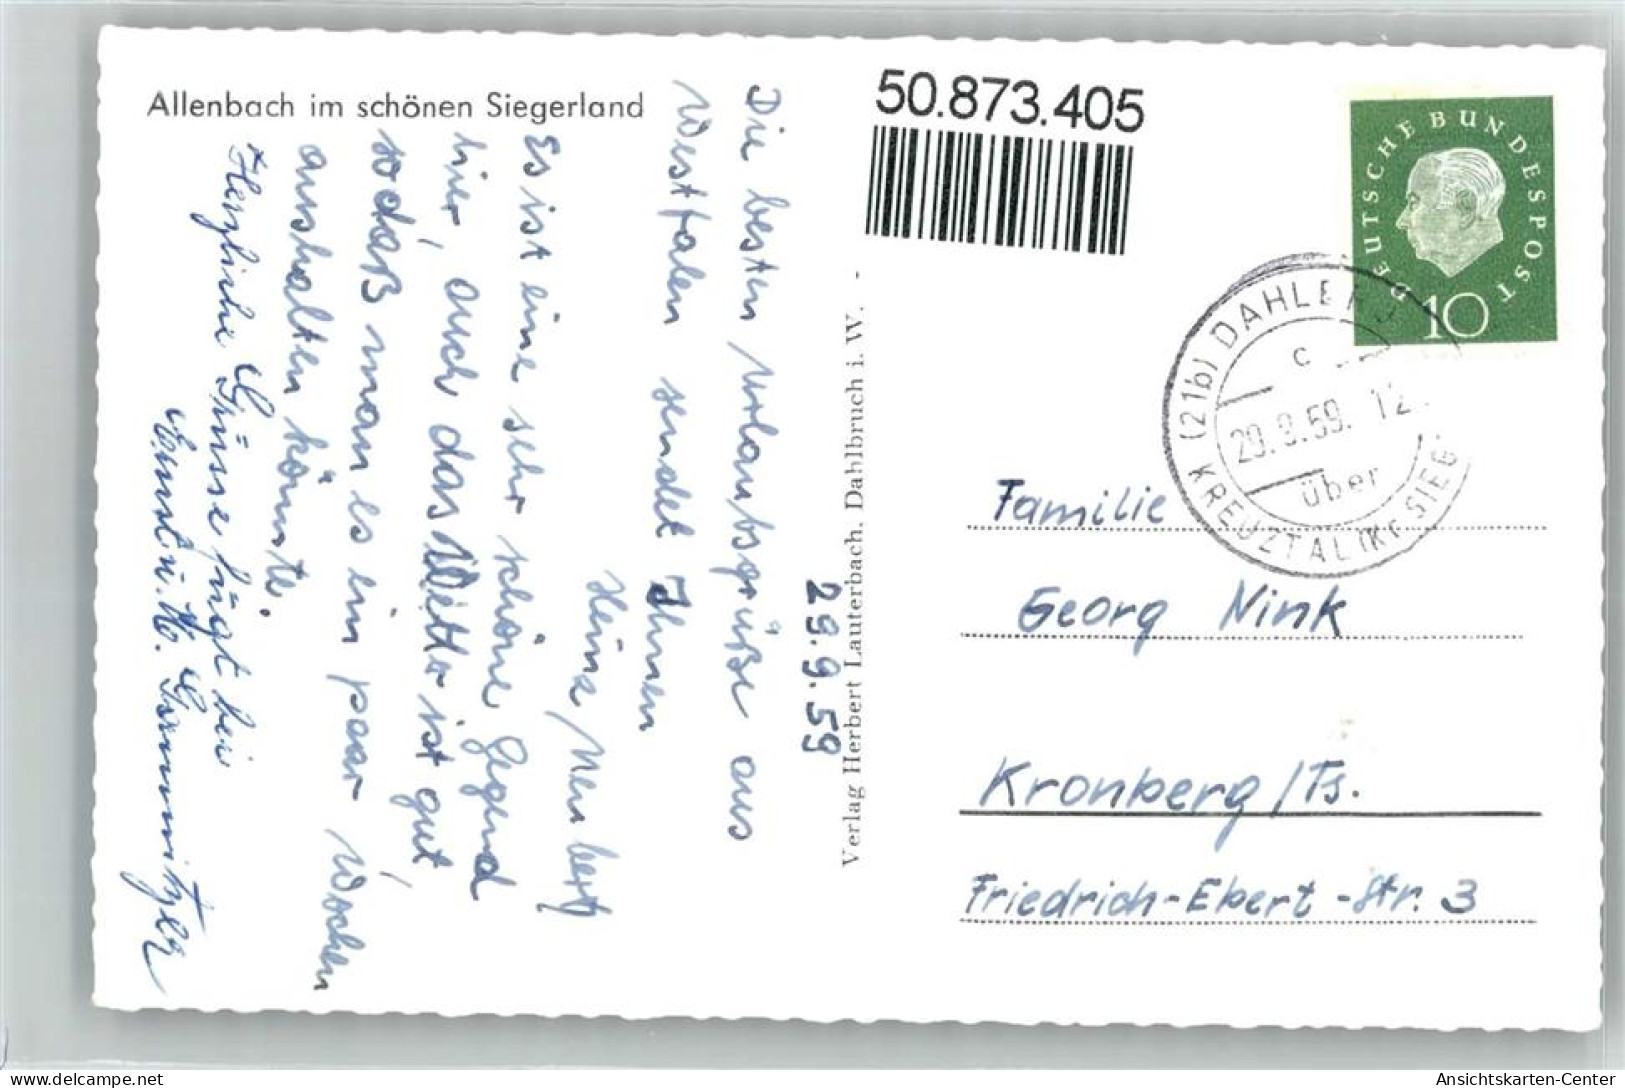 Allenbach im schönen Siegerland
50.873.405
DEUTSCHE BUNDESPOST
10
(21b) DAHLBRUCH
c
29.9.59. 12
über
KREUZTAL (KR SIEG
29.9.59
Die besten Urlaubsgrüße aus
Westfalen sendet Ihnen
Heinz
Es ist eine sehr schöne Gegend
hier, auch das Wetter ist gut,
sodaß man es ein paar Wochen
aushalten könnte.
Herzliche Grüsse fügt bei
Verlag Herbert Lauterbach, Dahlbruch i. W. -
Familie
Georg Nink
Kronberg /Ts.
Friedrich-Ebert-Str. 3
Ansichtskarten-Center